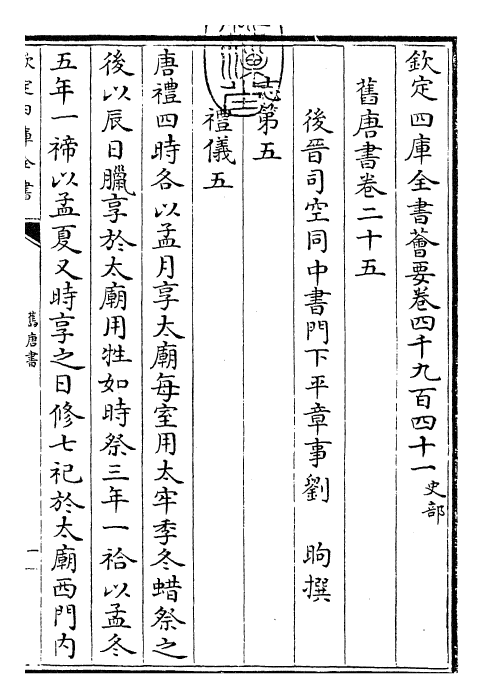 欽定四庫全書薈要卷四千九百四十一 史部
舊唐書卷二十五
後晉司空同中書門下平章事劉 昫撰
志第五
禮儀五
唐禮四時各以孟月享太廟每室用太牢季冬蜡祭之
後以辰日臘享於太廟用牲如時祭三年一祫以孟冬
五年一禘以孟夏又時享之日修七祀於太廟西門内
欽定四庫全書
舊唐書
一